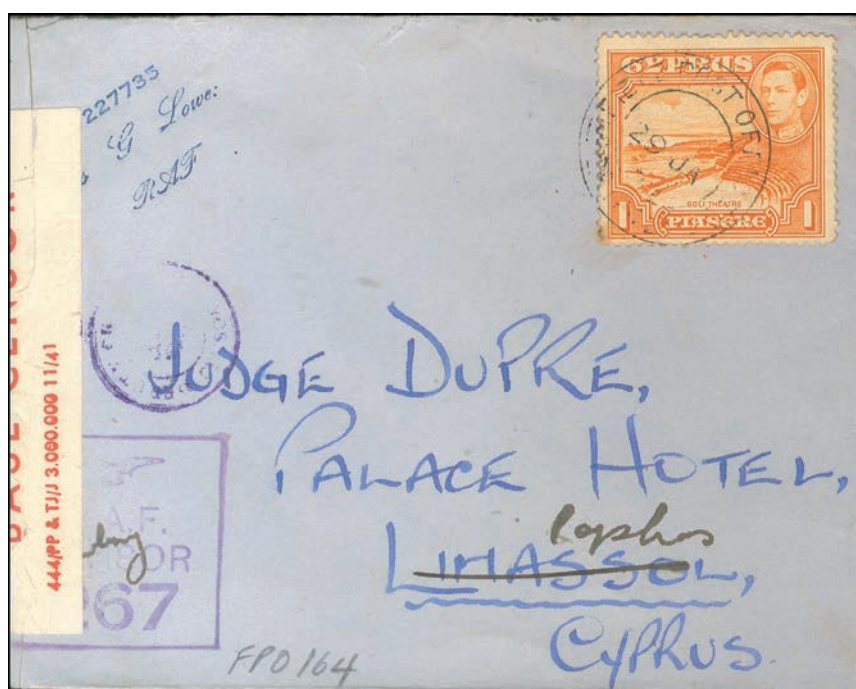 227735
G Lowe:
RAF
CYPRUS
POST OF
29 JA
SOLI THEATRE
1 PIASTRE 1
444/PP & TJ/J 3.000.000 11/41
JUDGE DUPRE,
PALACE HOTEL,
Paphos
LIMASSOL,
CYPRUS.
A.F.
SOR
267
FPO 164